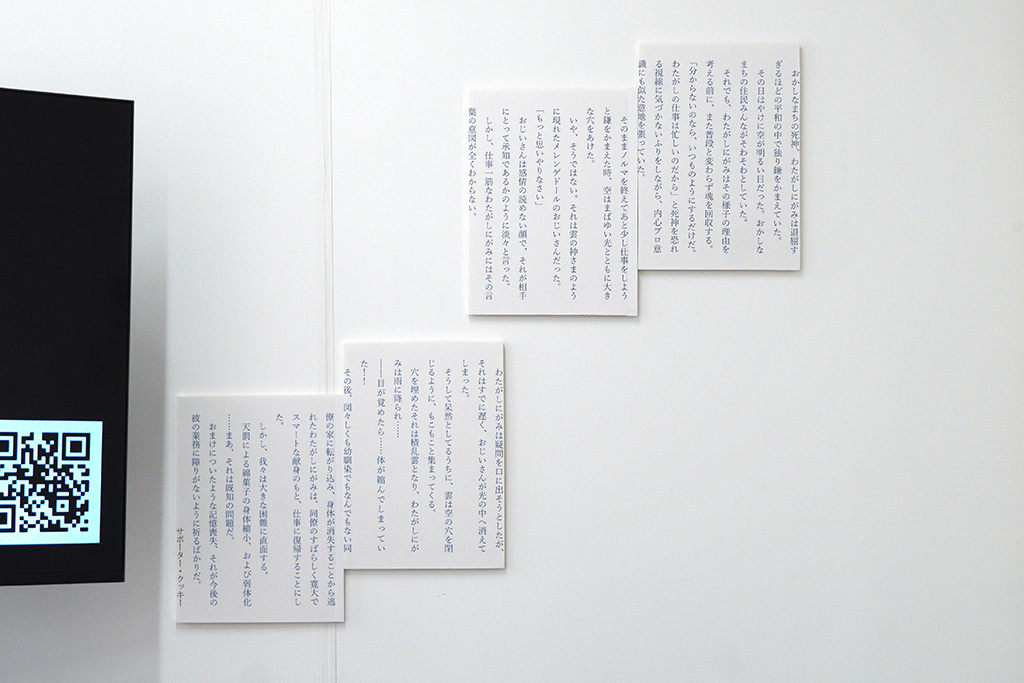 おかしなまちの死神、わたがしにがみは退屈す
ぎるほどの平和の中で独り鎌をかまえていた。
その日はやけに空が明るい日だった。おかしな
まちの住民みんながそわそわとしていた。
それでも、わたがしにがみはその様子の理由を
考える前に、また普段と変わらず魂を回収する。
「分からないのなら、いつものようにするだけだ。
わたがしの仕事は忙しいのだから」と死神を恐れ
る視線に気づかないふりをしながら、内心プロ意
識にも似た意地を張っていた。
そのままノルマを終えてあと少し仕事をしよう
と鎌をかまえた時、空はまばゆい光とともに大き
な穴をあけた。
いや、そうではない。それは雲の神さまのよう
に現れたメレンゲドールのおじいさんだった。
「もっと思いやりなさい」
おじいさんは感情の読めない顔で、それが相手
にとって承知であるかのように淡々と言った。
しかし、仕事一筋なわたがしにがみにはその言
葉の意図が全くわからない。
わたがしにがみは疑問を口に出そうとしたが、
それはすでに遅く、おじいさんが光の中へ消えて
しまった。
そうして呆然としてるうちに、雲は空の穴を閉
じるように、もこもこと集まってくる。
穴を埋めたそれは積乱雲となり、わたがしにが
みは雨に降られ……
――目が覚めたら……体が縮んでしまってい
た！！
その後、図々しくも幼馴染でもなんでもない同
僚の家に転がり込み、身体が消失することから逃
れたわたがしにがみは、同僚のすばらしく寛大で
スマートな献身のもと、仕事に復帰することにし
た。
しかし、我々は大きな困難に直面する。
天罰による綿菓子の身体縮小、および弱体化
……まあ、それは既知の問題だ。
おまけについたような記憶喪失、それが今後の
彼の業務に障りがないように祈るばかりだ。
サポーター・クッキー